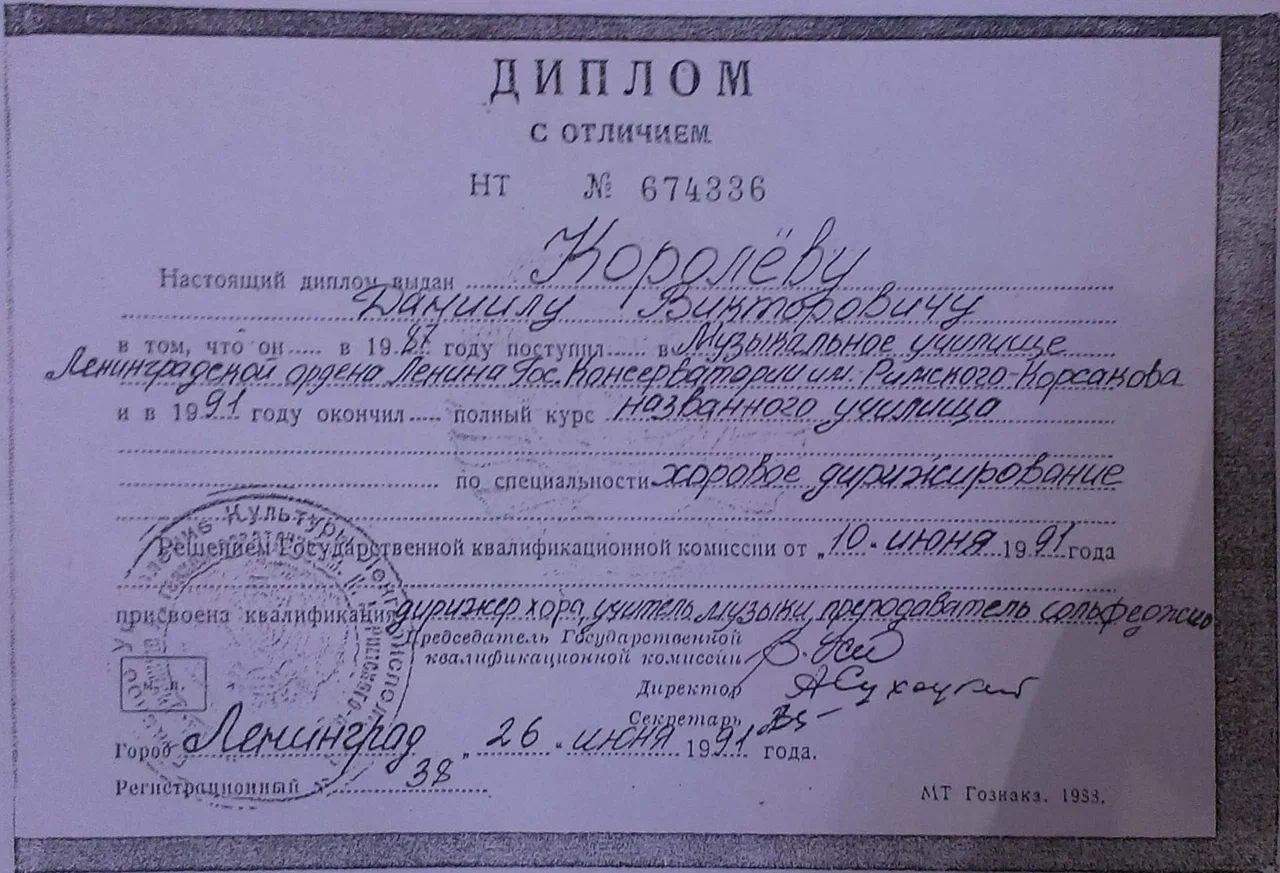 ДИПЛОМ
С ОТЛИЧИЕМ
НТ № 674336
Настоящий диплом выдан Королёву
Даниилу Викторовичу
в том, что он в 1987 году поступил в Музыкальное училище
Ленинградской ордена Ленина Гос. Консерватории им. Римского-Корсакова
и в 1991 году окончил полный курс названного училища
по специальности хоровое дирижирование
Решением Государственной квалификационной комиссии от „10“ июня 1991 года
присвоена квалификация дирижер хора, учитель музыки, преподаватель сольфеджио
Председатель Государственной
квалификационной комиссии
Директор
Секретарь
м. п.
Город Ленинград „26“ июня 1991 года.
Регистрационный № 38
МТ Гознака. 1988.